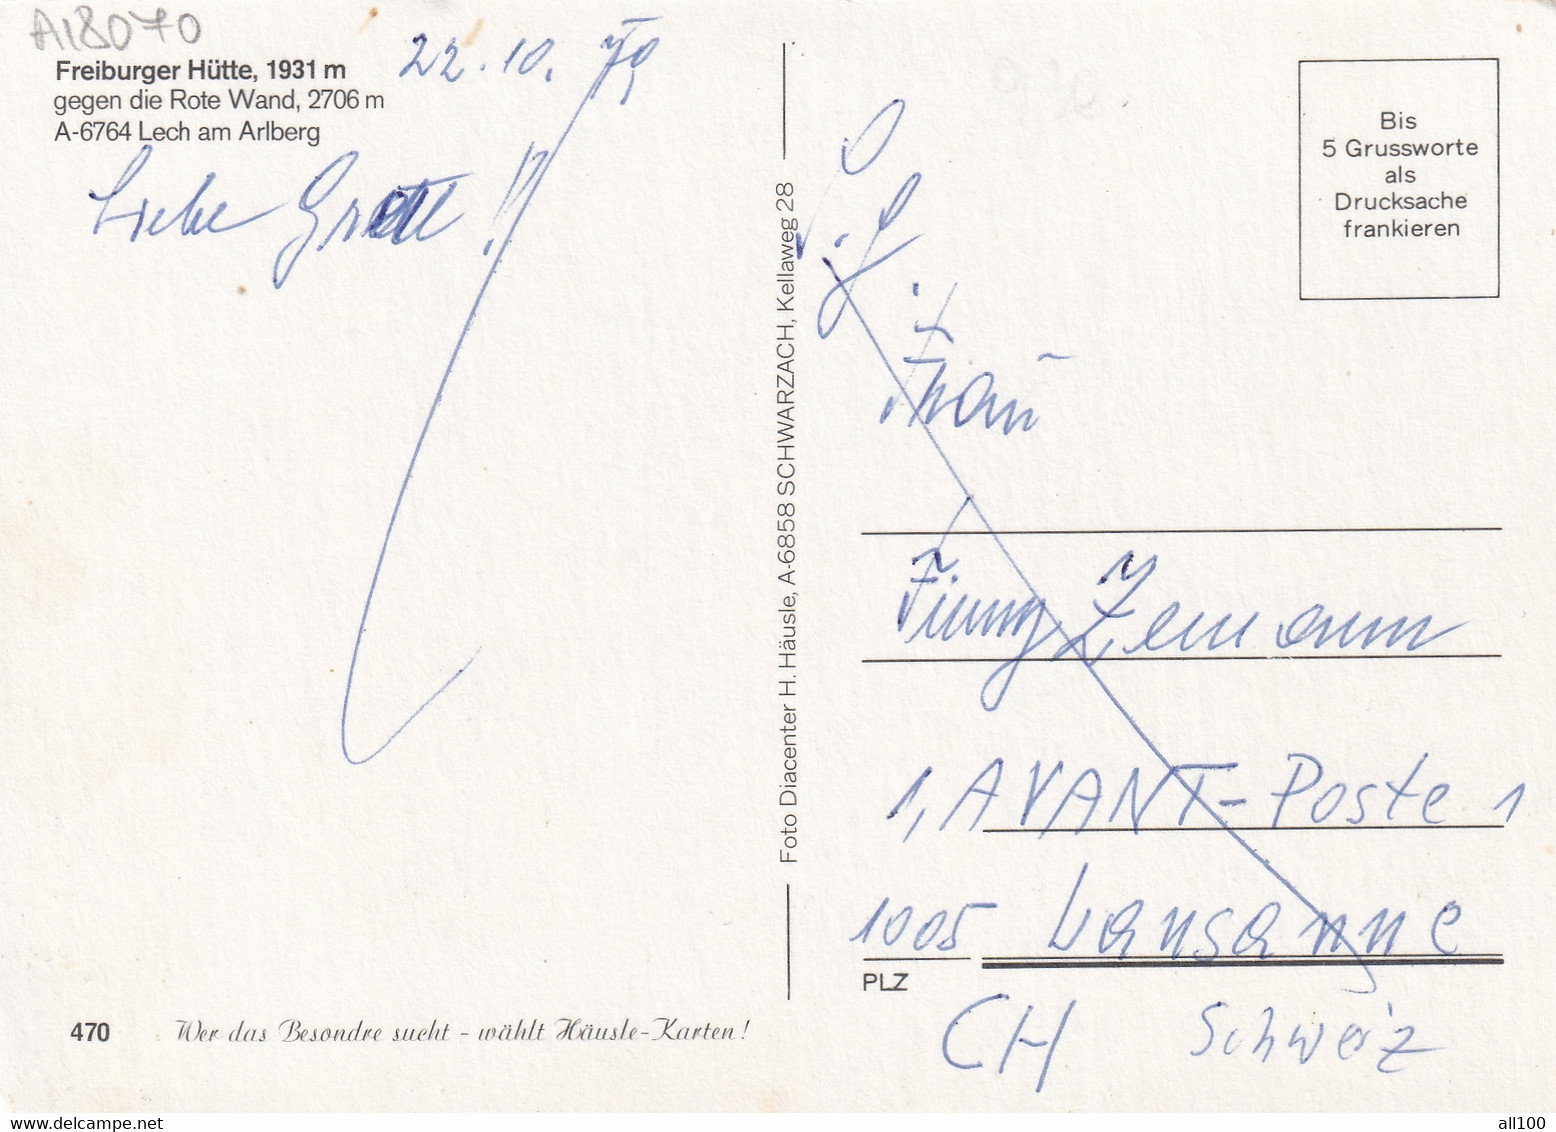 A18070
22.10.79
Freiburger Hütte, 1931 m
gegen die Rote Wand, 2706 m
A-6764 Lech am Arlberg
Liebe
Foto Diacenter H. Häusle, A-6858 SCHWARZACH, Kellaweg 28
470
Wer das Besondre sucht - wählt Häusle-Karten!
Bis
5 Grussworte
als
Drucksache
frankieren
Frau
Zemann
1, AVANT-Poste 1
1005 Lausanne
PLZ
CH Schweiz
delcampe.net
all100